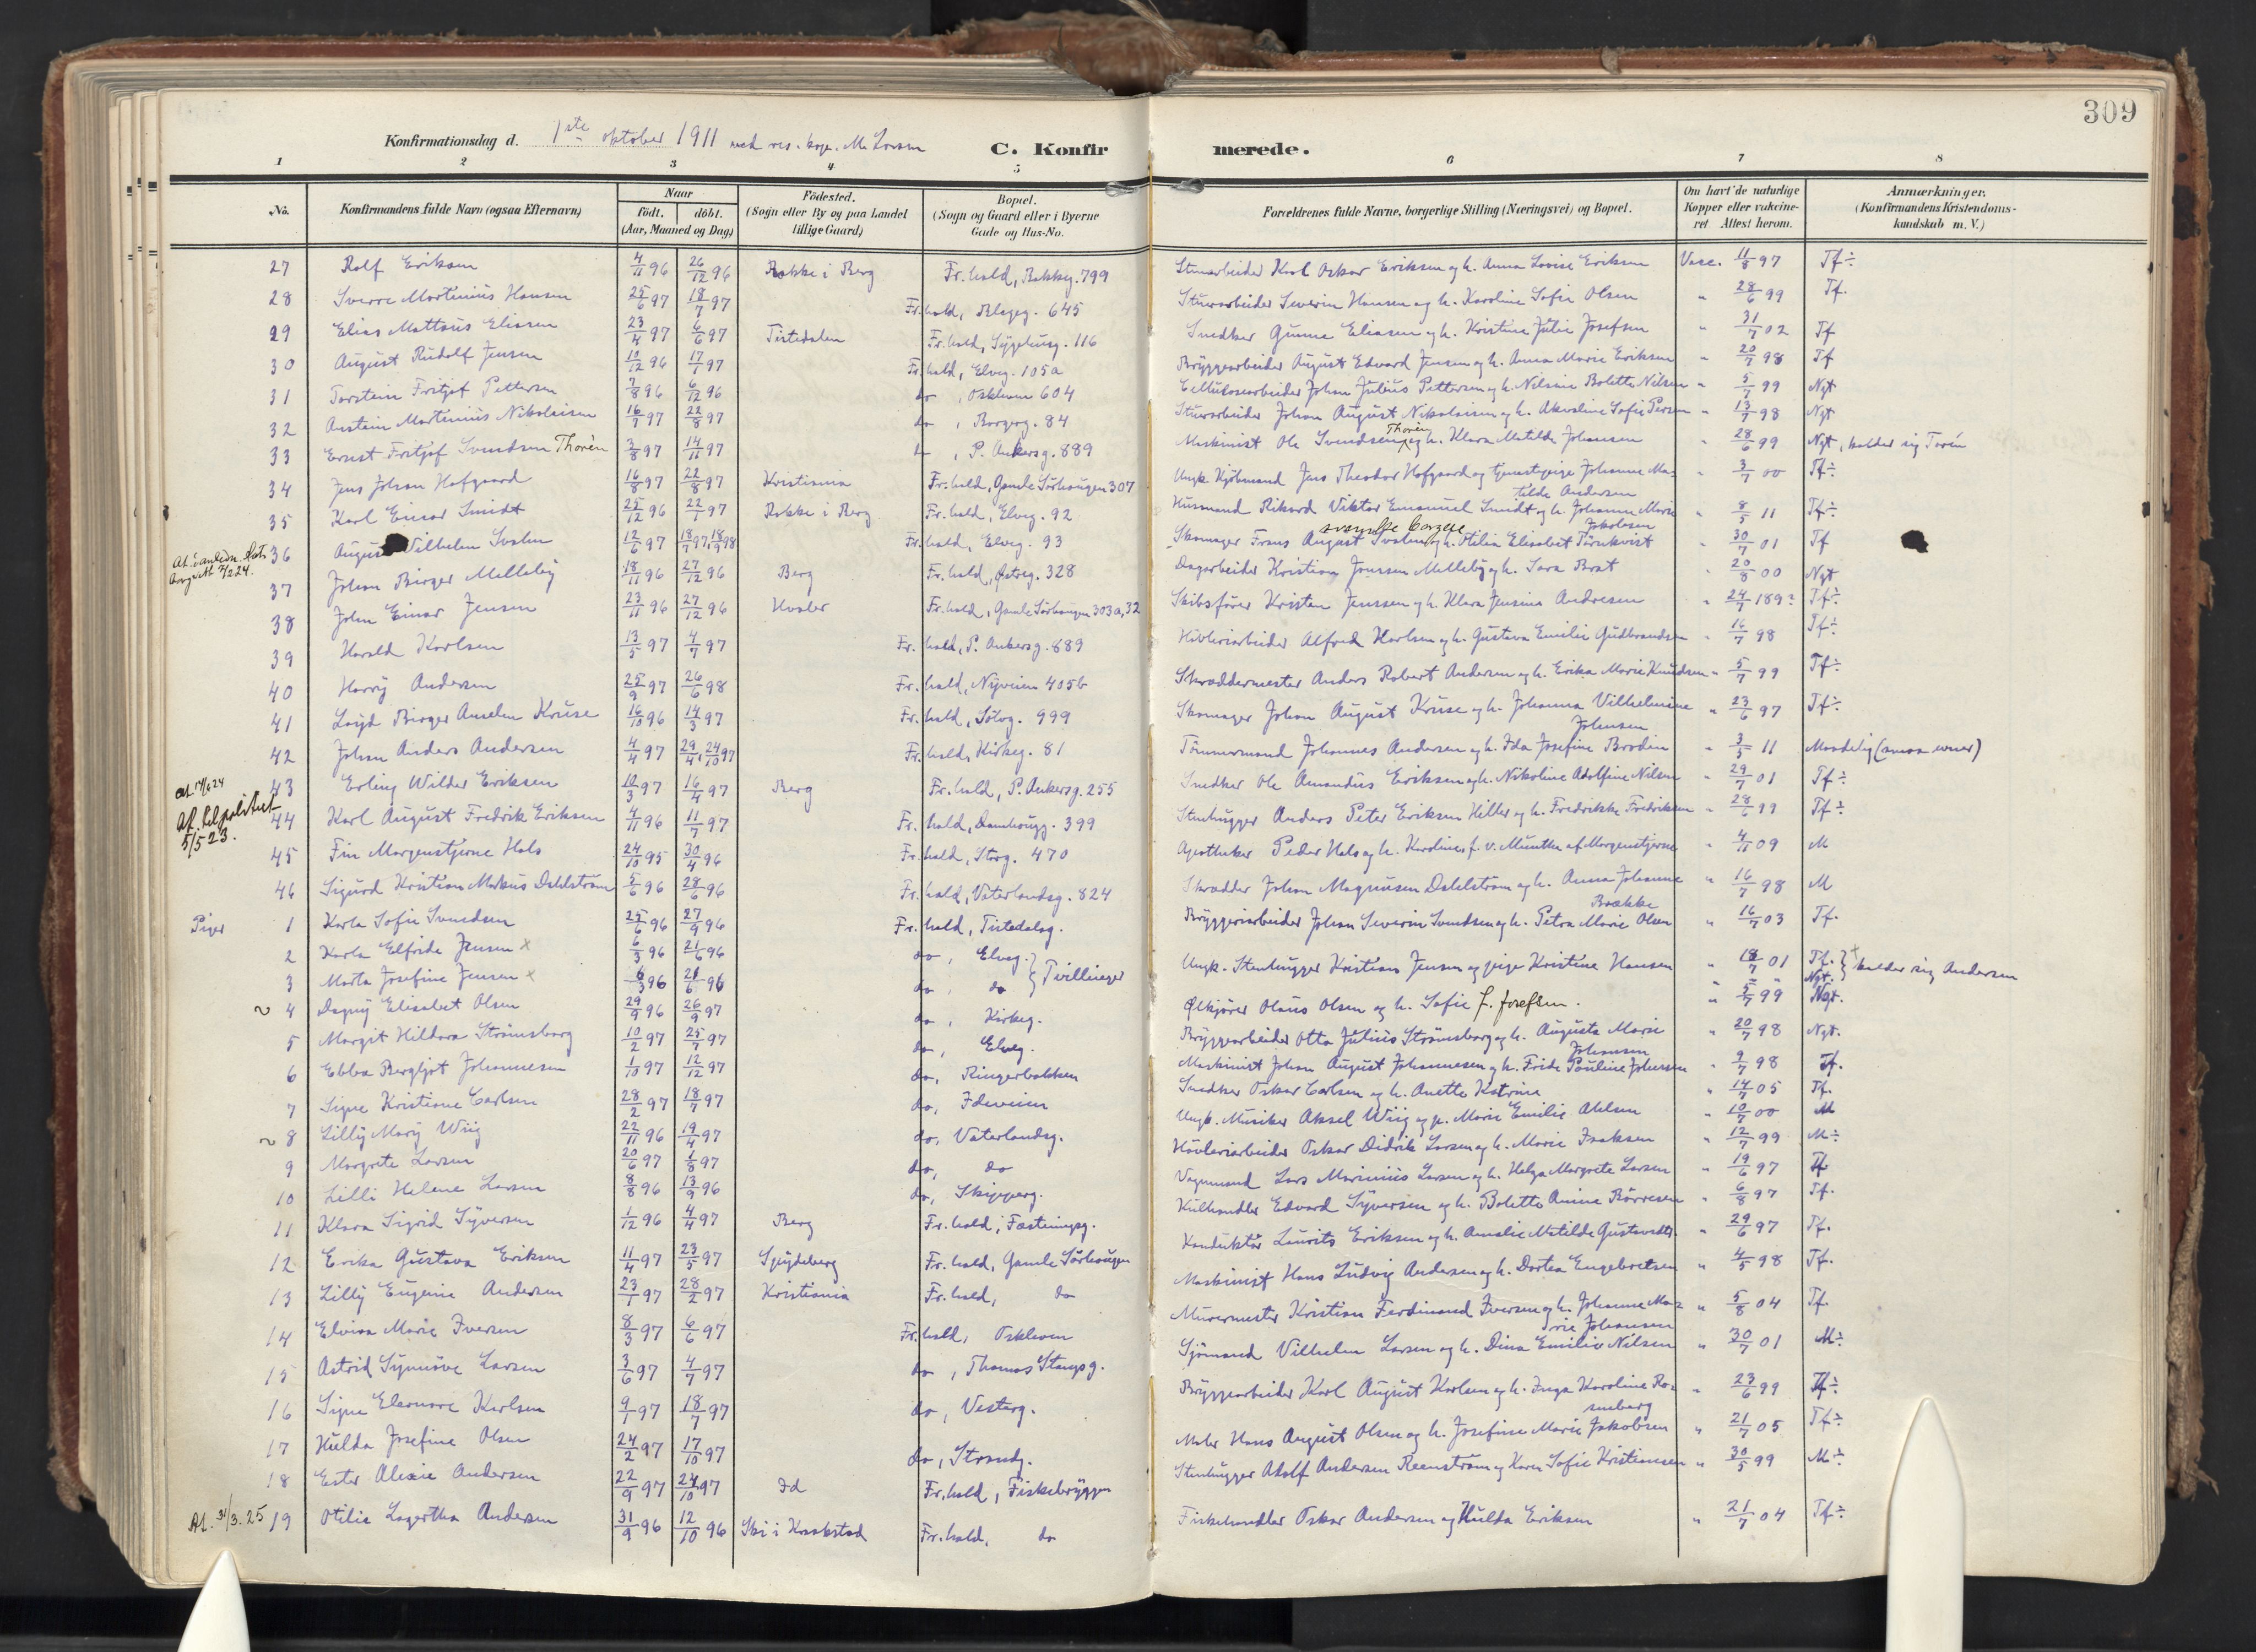 309
Konfirmationsdag d. 1ste oktober 1911 med res. kap. M. Larsen
C. Konfirmerede.
1 2 3 4 5 6 7 8
No. Konfirmandens fulde Navn (ogsaa Efternavn) Naar födt. döbt. (Aar, Maaned og Dag) Födested. (Sogn eller By og paa Landet tillige Gaard) Bopæl. (Sogn og Gaard eller i Byerne Gade og Hus-No. Forældrenes fulde Navne, borgerlige Stilling (Næringsvei) og Bopæl. Om havt de naturlige Kopper eller vakcineret. Attest herom. Anmærkninger. (Konfirmandens Kristendomskundskab m. V.)
27 Rolf Eriksen 4/11 96 26/12 96 Rokke i Berg Fr.hald, Bakkeg. 799 Stuerarbeider Karl Oskar Eriksen og h. Anna Lovise Eriksen Vacc. 11/8 97 Tf÷
28 Sverre Martinius Hansen 25/6 97 18/7 97 Fr.hald, 645 Stuerarbeider Severin Hansen og h. Karoline Sofie Olsen " 28/6 99 Tf.
29 Elias Mattæus Eliasen 23/4 97 6/6 97 Tistedalen Fr.hald, Sygehusg. 116 Snedker Gunne Eliasen og h. Kristine Julie Josefsen " 31/7 02 Tf
30 August Rudolf Jensen 10/12 96 17/1 97 Fr.hald, Elveg. 105a Bryggearbeider August Edvard Jensen og h. Anna Marie Eriksen " 20/7 98 Tf
31 Torstein Fritjof Pettersen 7/8 96 6/12 96 do, Oskleven 604 Cellulosearbeider Johan Julius Pettersen og h. Nilsine Bolette Nilsen " 5/7 99 Ngt
32 Anstein Martinius Nikolaisen 16/7 97 22/8 97 do, Borgerg. 84 Stuerarbeider Johan August Nikolaisen og h. Akseline Sofie Persen " 13/7 98 Ngt
33 Ernst Fritjof Svendsen Thorèn 3/8 97 14/11 97 do, P. Ankersg. 889 Maskinist Ole Svendsen Thorèn og h. Klara Matilde Johansen " 28/6 99 Ngt, kalder sig Torén
34 Jens Johan Hofgaard 16/8 97 22/8 97 Kristiania Fr.hald, Gamle Sørhaugen 307 Ungk Kjöbmand Jens Theodor Hofgaard og tjenestepige Johanne Matilde Andersen " 3/7 00 Tf÷
35 Karl Einar Smidt 25/12 96 22/1 97 Rokke i Berg Fr.hald, Elveg. 92 Husmand Rikard Viktor Emanuel Smidt og h. Johanne Marie Jakobsen " 8/5 11 Tf÷
At. 7/2 24. 36 August Vilhelm Svalin 12/6 97 18/7 97, 18/9 98 Fr.hald, Elveg. 93 Skomager Frans August Svalin svenske borgere og h. Otilia Elisabet Törnkvist " 30/7 01 Tf
37 Johan Birger Melleby 18/11 96 27/12 96 Berg Fr.hald, Østreg. 328 Dagarbeider Kristian Jonssen Melleby og h. Sara Brat " 20/8 00 Ngt
38 John Einar Jensen 23/11 96 27/12 96 Hvaler Fr.hald, Gamle Sørhaugen 303a,32 Skibsfører Kristen Jenssen og h. Klara Jensine Andresen " 24/7 189? Tf÷
39 Harald Karlsen 13/5 97 4/7 97 Fr.hald, P. Ankersg. 889 Høvleriarbeider Alfred Karlsen og h. Gustava Emilie Gudbrandsen " 16/7 98 Tf÷
40 Harry Andersen 25/9 97 26/6 98 Fr.hald, Nyveien 405b Skræddermester Anders Robert Andersen og h. Erika Marie Knudsen " 5/7 99 Tf÷
41 Loyd Birger Anselm Kruse 16/10 96 14/3 97 Fr.hald, Sølvg. 999 Skomager Johan August Kruse og h. Johanna Vilhelmine Johnsen " 23/6 97 Tf÷
42 Johan Anders Andersen 4/4 97 29/4, 24/10 97 Fr.hald, Kirkeg. 81 Tømmermand Johannes Andersen og h. Ida Josefine Brodin " 3/5 11 Maadelig (smaa evner)
At. 14/6 24 43 Erling Wilder Eriksen 10/3 97 16/4 97 Berg Fr.hald, P. Ankersg. 255 Snedker Ole Amandus Eriksen og h. Nikoline Adolfine Nilsen " 29/7 01 Tf÷
At. 5/5 23. 44 Karl August Fredrik Eriksen 4/11 96 11/7 97 Fr.hald, Damhaugg. 399 Stenhugger Anders Peter Eriksen Hiller og h. Fredrikke Fredriksen " 28/6 99 Tf÷
45 Fin Morgenstjerne Hals 24/10 95 30/4 96 Fr.hald, Storg. 470 Apotheker Peder Hals og h. Karoline, f. v. Munthe af Morgenstjerne " 4/11 09 M
46 Sigurd Kristian Markus Dahlstrøm 5/6 96 28/6 96 Fr.hald, Vaterlandsg. 824 Skrædder Johan Magnusen Dahlstrøm og h. Anna Johanne Brække " 16/7 98 M
Piger 1 Karla Sofie Svendsen 25/6 96 27/9 96 Fr.hald, Tistedalsg. Bryggeriarbeider Johan Severin Svendsen og h. Petra Marie Olsen " 16/7 03 Tf.
2 Karla Elfride Jensen x 6/3 96 21/6 96 do, Elveg. } Tvillinger Ungk. Stenhugger Kristian Jensen og pige Kristine Hansen " 18/7 01 Tf. } + kalder sig Andersen
3 Marta Josefine Jensen x 6/3 96 21/6 96 do, do " " Ngt.
4 Dagny Elisabet Olsen 29/9 96 26/9 97 do, Kirkeg. Ølkjører Olaus Olsen og h. Sofie f. Josefsen. " 5/7 99 Ngt.
5 Margit Hildora Strømsborg 10/2 97 25/7 97 do, Elveg. Bryggearbeider Otto Julius Strømsborg og h. Augusta Marie Johansen " 20/7 98 Ngt.
6 Ebba Bergljot Johannesen 1/10 97 12/12 97 do, Ringerbakken Maskinist Johan August Johannesen og h. Frida Pauline Johansen " 9/7 98 Tf.
7 Signe Kristiane Carlsen 28/2 97 18/7 97 do, Ideveien Snedker Oskar Carlsen og h. Anette Katrine " 14/7 05 Tf.
8 Lilly Mary Wiig 22/11 96 19/4 97 do, Vaterlandsg. Ungk. Musiker Aksel Wiig og p. Marie Emilie Ahlsen " 10/7 00 M
9 Margrete Larsen 20/6 97 1/8 97 do, do Høvleriarbeider Oskar Didrik Larsen og h. Marie Isaksen " 12/7 99 M÷
10 Lilli Helene Larsen 8/8 96 13/9 96 do, Skipperg. Vognmand Lars Marinius Larsen og h. Helga Margrete Larsen " 19/6 97 Tf
11 Klara Sigrid Syversen 1/12 96 4/4 97 Berg Fr.hald, Fæstningsg. Kulhandler Edvard Syversen og h. Bolette Amine Børresen " 6/8 97 Tf.
12 Erika Gustava Eriksen 11/4 97 23/5 97 Spydeberg Fr.hald, Gamle Sørhaugen Konduktør Laurits Eriksen og h. Amalie Matilde Gustavsdtr. " 29/6 97 Tf.
13 Lilly Eugenie Andersen 23/1 97 28/2 97 Kristiania Fr.hald, do Maskinist Hans Ludvig Andersen og h. Dortea Engebretsen " 4/5 98 Tf.
14 Elvira Marie Iversen 8/3 97 6/6 97 Fr.hald, Oskleven Murermester Kristian Ferdinand Iversen og h. Johanne Marie Johansen " 5/8 04 Tf.
15 Astrid Synnøve Larsen 3/6 97 4/7 97 do, Thomas Stangsg. Sjömand Vilhelm Larsen og h. Dina Emilie Nilsen " 30/7 01 M÷
16 Signe Eleonore Karlsen 9/1 97 18/7 97 do, Vesterg. Bryggearbeider Karl August Karlsen og h. Inga Karoline Rosenberg " 23/6 99 Tf÷
17 Hulda Josefine Olsen 24/2 97 17/10 97 do, Strandg. Maler Hans August Olsen og h. Josefine Marie Jakobsen " 21/7 05 Tf÷
18 Ester Alexie Andersen 22/9 97 24/10 97 Id Fr.hald, Fiskebryggen Stenhugger Adolf Andersen Reenstrøm og Karen Sofie Kristiansen " 30/5 99 M÷
At. 31/3. 25 19 Otilie Lagertha Andersen 31/9 96 12/10 96 Ski i Kraakstad Fr.hald, do Fiskehandler Oskar Andersen og Hulda Eriksen " 21/7 04 Tf÷